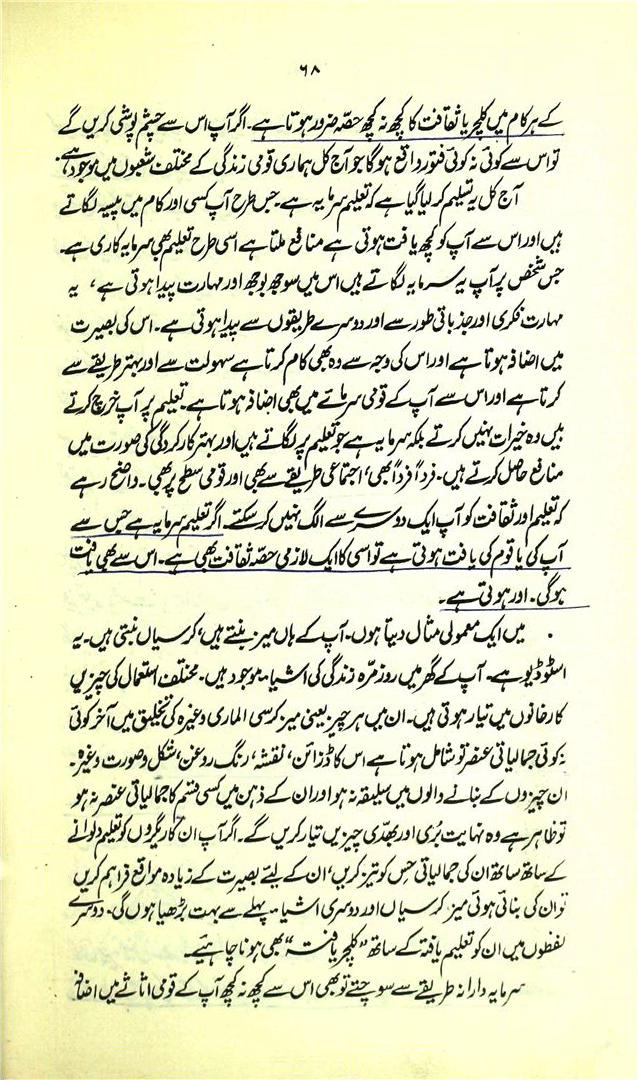 ۶۸
کے ہر کام میں کلچر یا ثقافت کا کچھ نہ کچھ حصّہ ضرور ہوتا ہے۔ اگر آپ اس سے چشم پوشی کریں گے
تو اس سے کوئی نہ کوئی فتور واقع ہوگا جو آج کل ہماری قومی زندگی کے مختلف شعبوں میں موجود ہے۔
آج کل یہ تسلیم کر لیا گیا ہے کہ تعلیم سرمایہ ہے۔ جس طرح آپ کسی اور کام میں پیسہ لگاتے
ہیں اور اس سے آپ کو کچھ یافت ہوتی ہے منافع ملتا ہے اسی طرح تعلیم بھی سرمایہ کاری ہے۔
جس شخص پر آپ یہ سرمایہ لگاتے ہیں اس میں سوجھ بوجھ اور مہارت پیدا ہوتی ہے، یہ
مہارت فکری اور جذباتی طور سے اور دوسرے طریقوں سے پیدا ہوتی ہے۔ اس کی بصیرت
میں اضافہ ہوتا ہے اور اس کی وجہ سے وہ بھی کام کرتا ہے سہولت سے اور بہتر طریقے سے
کرتا ہے اور اس سے آپ کے قومی سرمائے میں بھی اضافہ ہوتا ہے۔ تعلیم پر آپ خرچ کرتے
ہیں وہ خیرات نہیں کرتے بلکہ سرمایہ ہے جو تعلیم پر لگاتے ہیں اور بہتر کارکردگی کی صورت میں
منافع حاصل کرتے ہیں۔ فرداً فرداً بھی، اجتماعی طریقے سے بھی اور قومی سطح پر بھی۔ واضح رہے
کہ تعلیم اور ثقافت کو آپ ایک دوسرے سے الگ نہیں کر سکتے۔ اگر تعلیم سرمایہ ہے جس سے
آپ کی یا قوم کی یافت ہوتی ہے تو اسی کا ایک لازمی حصّہ ثقافت بھی ہے۔ اس سے بھی یافت
ہوگی۔ اور ہوتی ہے۔
میں ایک معمولی مثال دیتا ہوں۔ آپ کے ہاں میز بنتے ہیں، کرسیاں بنتی ہیں۔ یہ
اسٹوڈیو ہے۔ آپ کے گھر میں روزمرّہ زندگی کی اشیاء موجود ہیں۔ مختلف استعمال کی چیزیں
کارخانوں میں تیار ہوتی ہیں۔ ان میں ہر چیز یعنی میز کرسی الماری وغیرہ کی تخلیق میں آخر کوئی
نہ کوئی جمالیاتی عنصر تو شامل ہوتا ہے اس کا ڈزائن، نقشہ، رنگ روغن، شکل و صورت وغیرہ۔
ان چیزوں کے بنانے والوں میں سلیقہ نہ ہو اور ان کے ذہن میں کسی قسم کا جمالیاتی عنصر نہ ہو
تو ظاہر ہے وہ نہایت بُری اور بھدّی چیزیں تیار کریں گے۔ اگر آپ ان کاریگروں کو تعلیم دلوانے
کے ساتھ ساتھ ان کی جمالیاتی حِس کو تیز کریں، ان کے لئے بصیرت کے زیادہ مواقع فراہم کریں
تو ان کی بنائی ہوئی میز کرسیاں اور دوسری اشیاء پہلے سے بہت بڑھیا ہوں گی۔ دوسرے
لفظوں میں ان کو تعلیم یافتہ کے ساتھ "کلچر یافتہ" بھی ہونا چاہیئے۔
سرمایہ دارانہ طریقے سے سوچئے تو بھی اس سے کچھ نہ کچھ آپ کے قومی اثاثے میں اضافہ